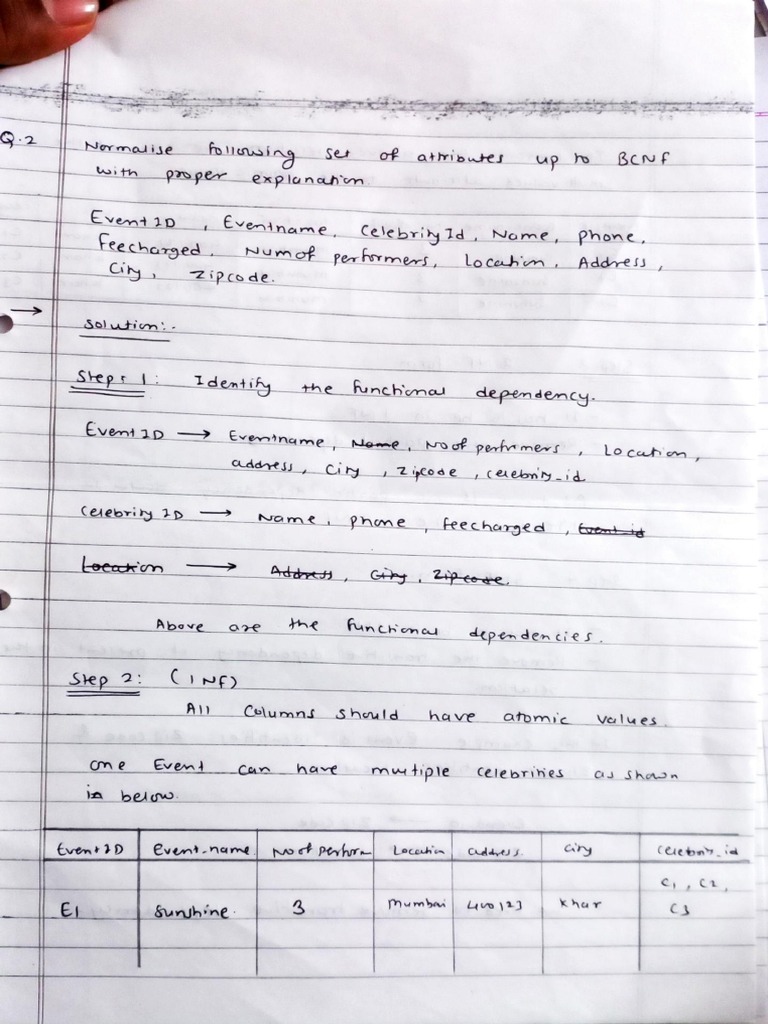 Q.2 Normalise following set of attributes up to BCNF
with proper explanation.
Event ID , Eventname, Celebrity Id, Name, phone,
feecharged, Num of performers, Location, Address,
City, Zipcode.
→
Solution:-
Step: 1: Identify the functional dependency.
Event ID → Eventname, Name, No of perfrmers, Location,
address, City, Zipcode, celebrity_id
Celebrity ID → Name, phone, feecharged, Event id
Location → Address, City, Zipcode.
Above are the functional dependencies.
Step 2: (1NF)
All Columns should have atomic values.
One Event can have multiple celebrities as shown
in below.
Event ID Event-name No of perform Location address. City celebrity_id
E1 Sunshine. 3 Mumbai 400123 Khar C1, C2,
C3